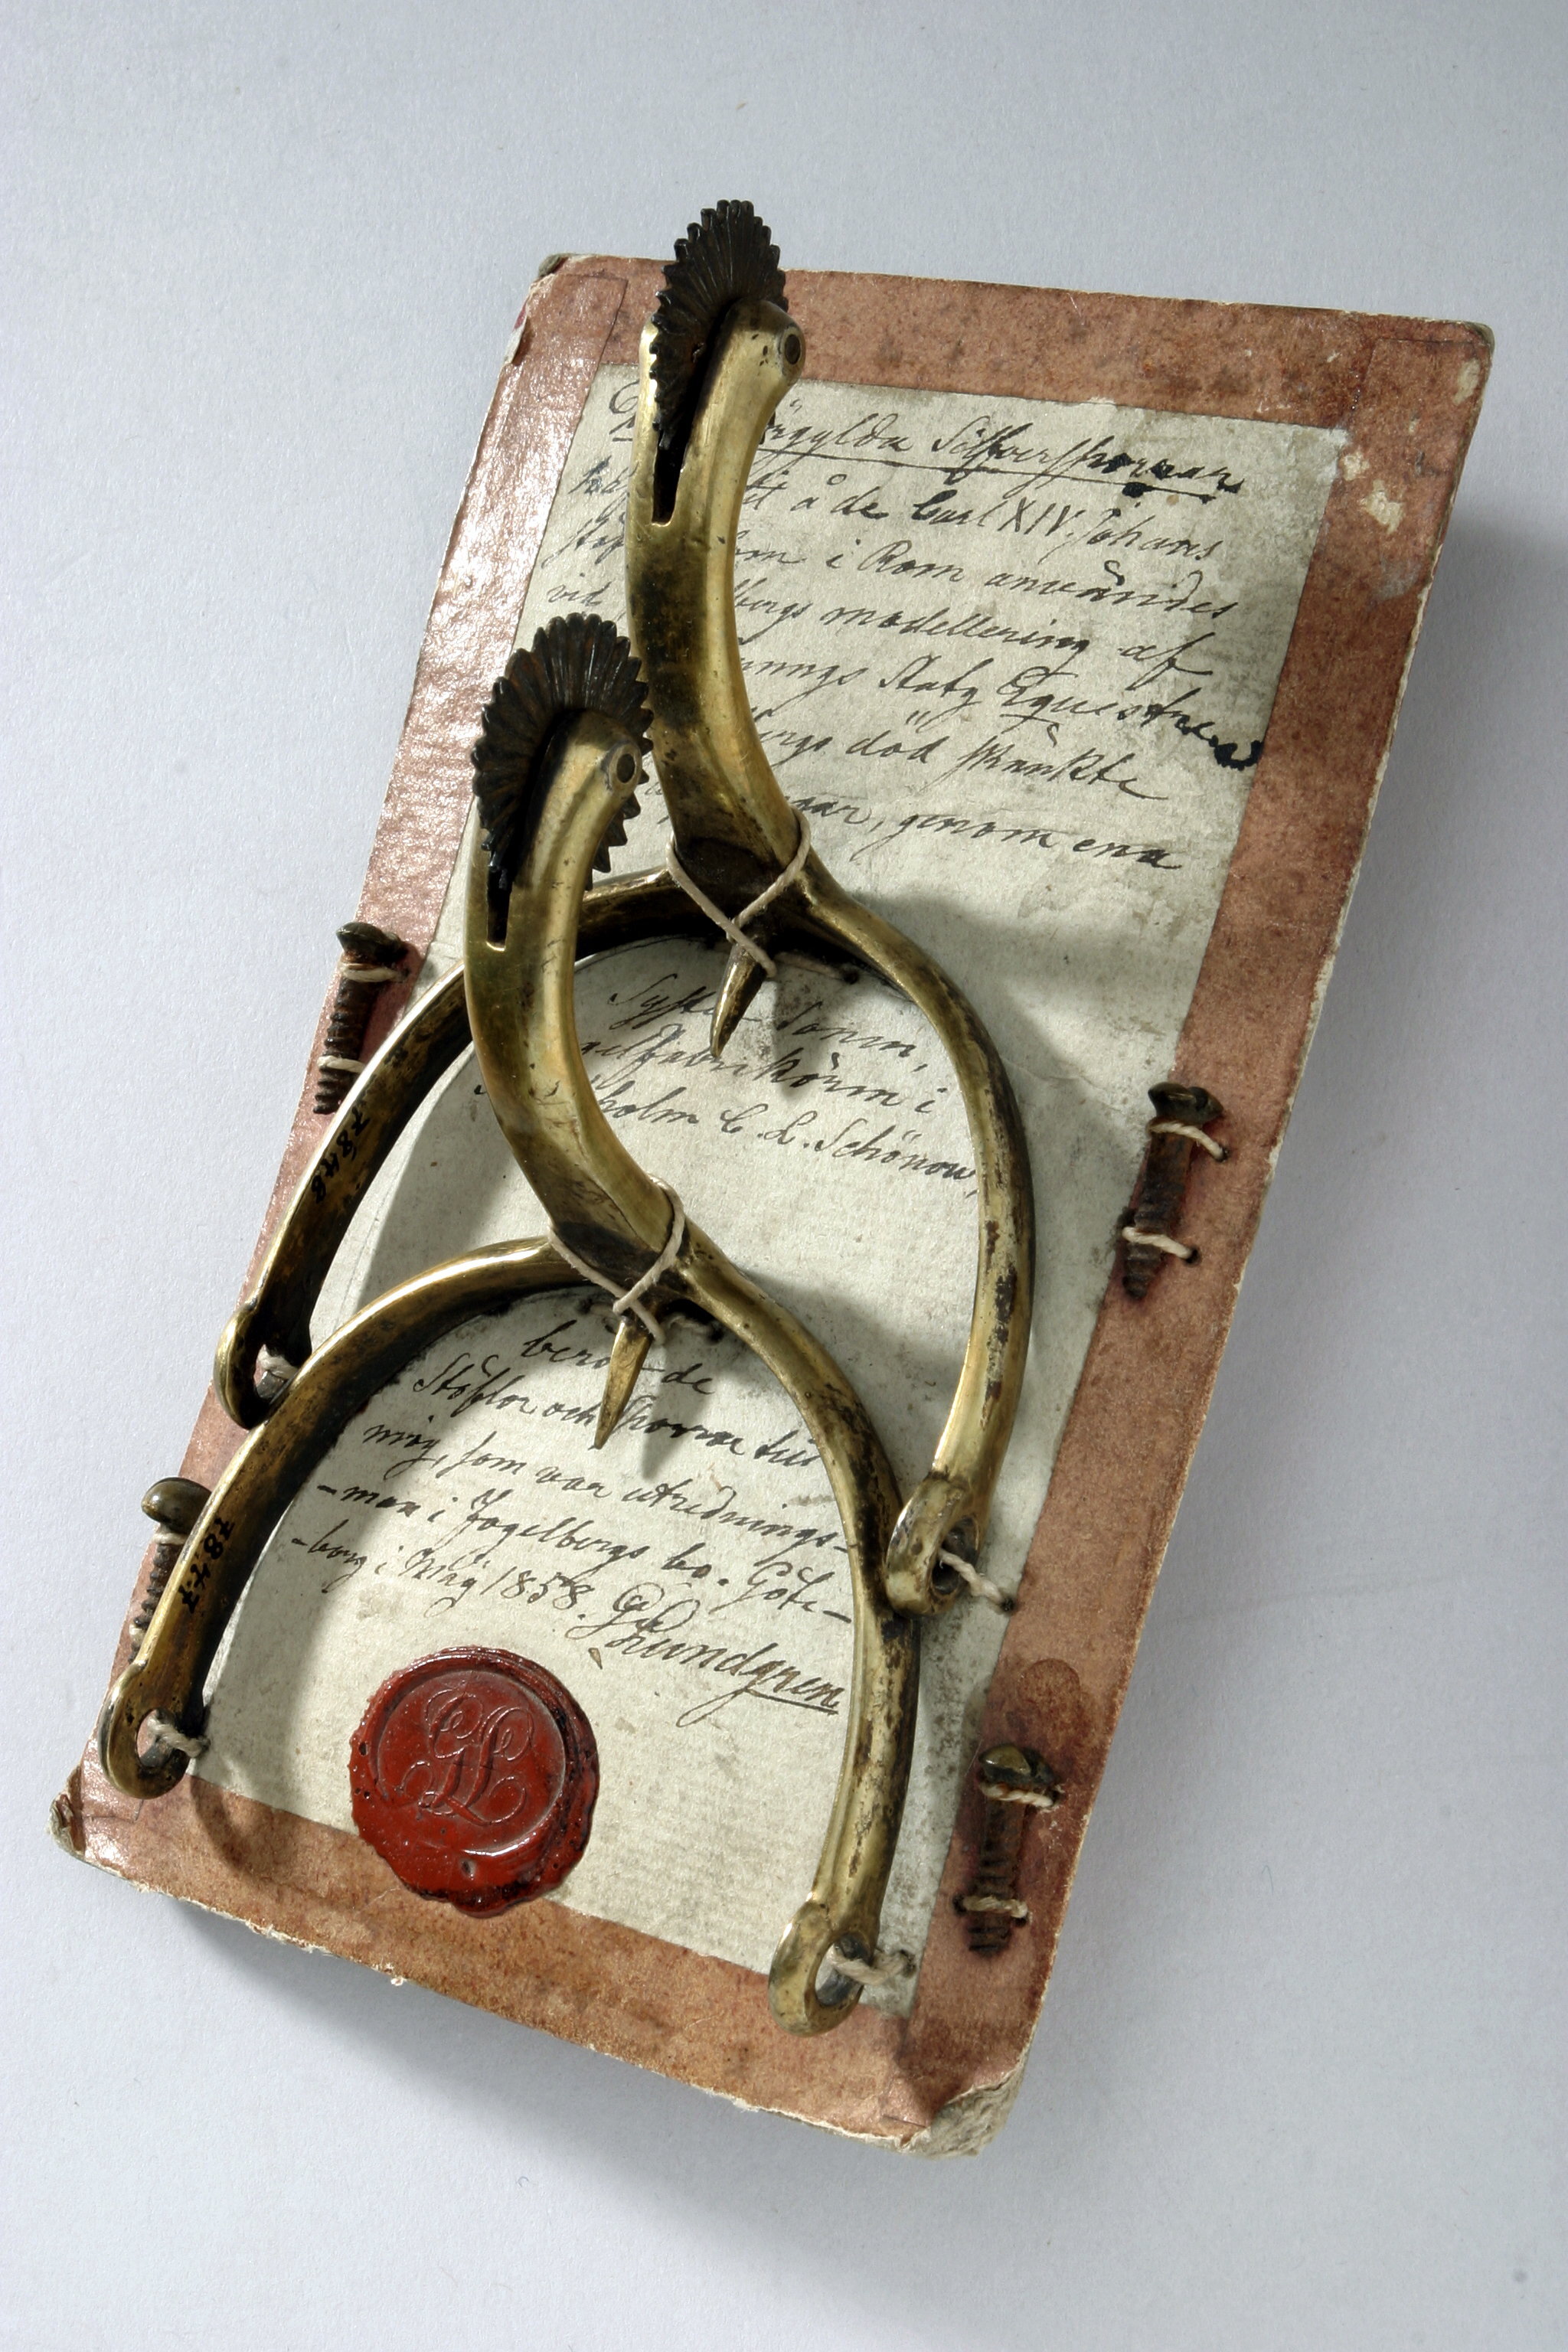 förgylda Silfversporrar
å de Carl XIV Johans
som i Rom användes
vid bergs modellering af
Konungs Staty Equestre.
bergs död skänkte
genom ena
Syster Sonen,
gelfabrikören i
holm C. L. Schönow,
bero de
Stöflor och Sporrar till
mig, som var utrednings-
-man i Fogelbergs bo. Göte-
-borg i Maj 1858.
Lundgren
GL
7848
7847